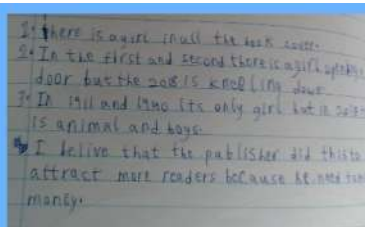 1. there is a girl in all the book cover.
2. In the first and second there is a girl opening
door but the 2018 is kneeling down
3. In 1911 and 1940 its only girl but in
is animal and boys.
I belive that the publisher did this to
attract more readers because he need
money.